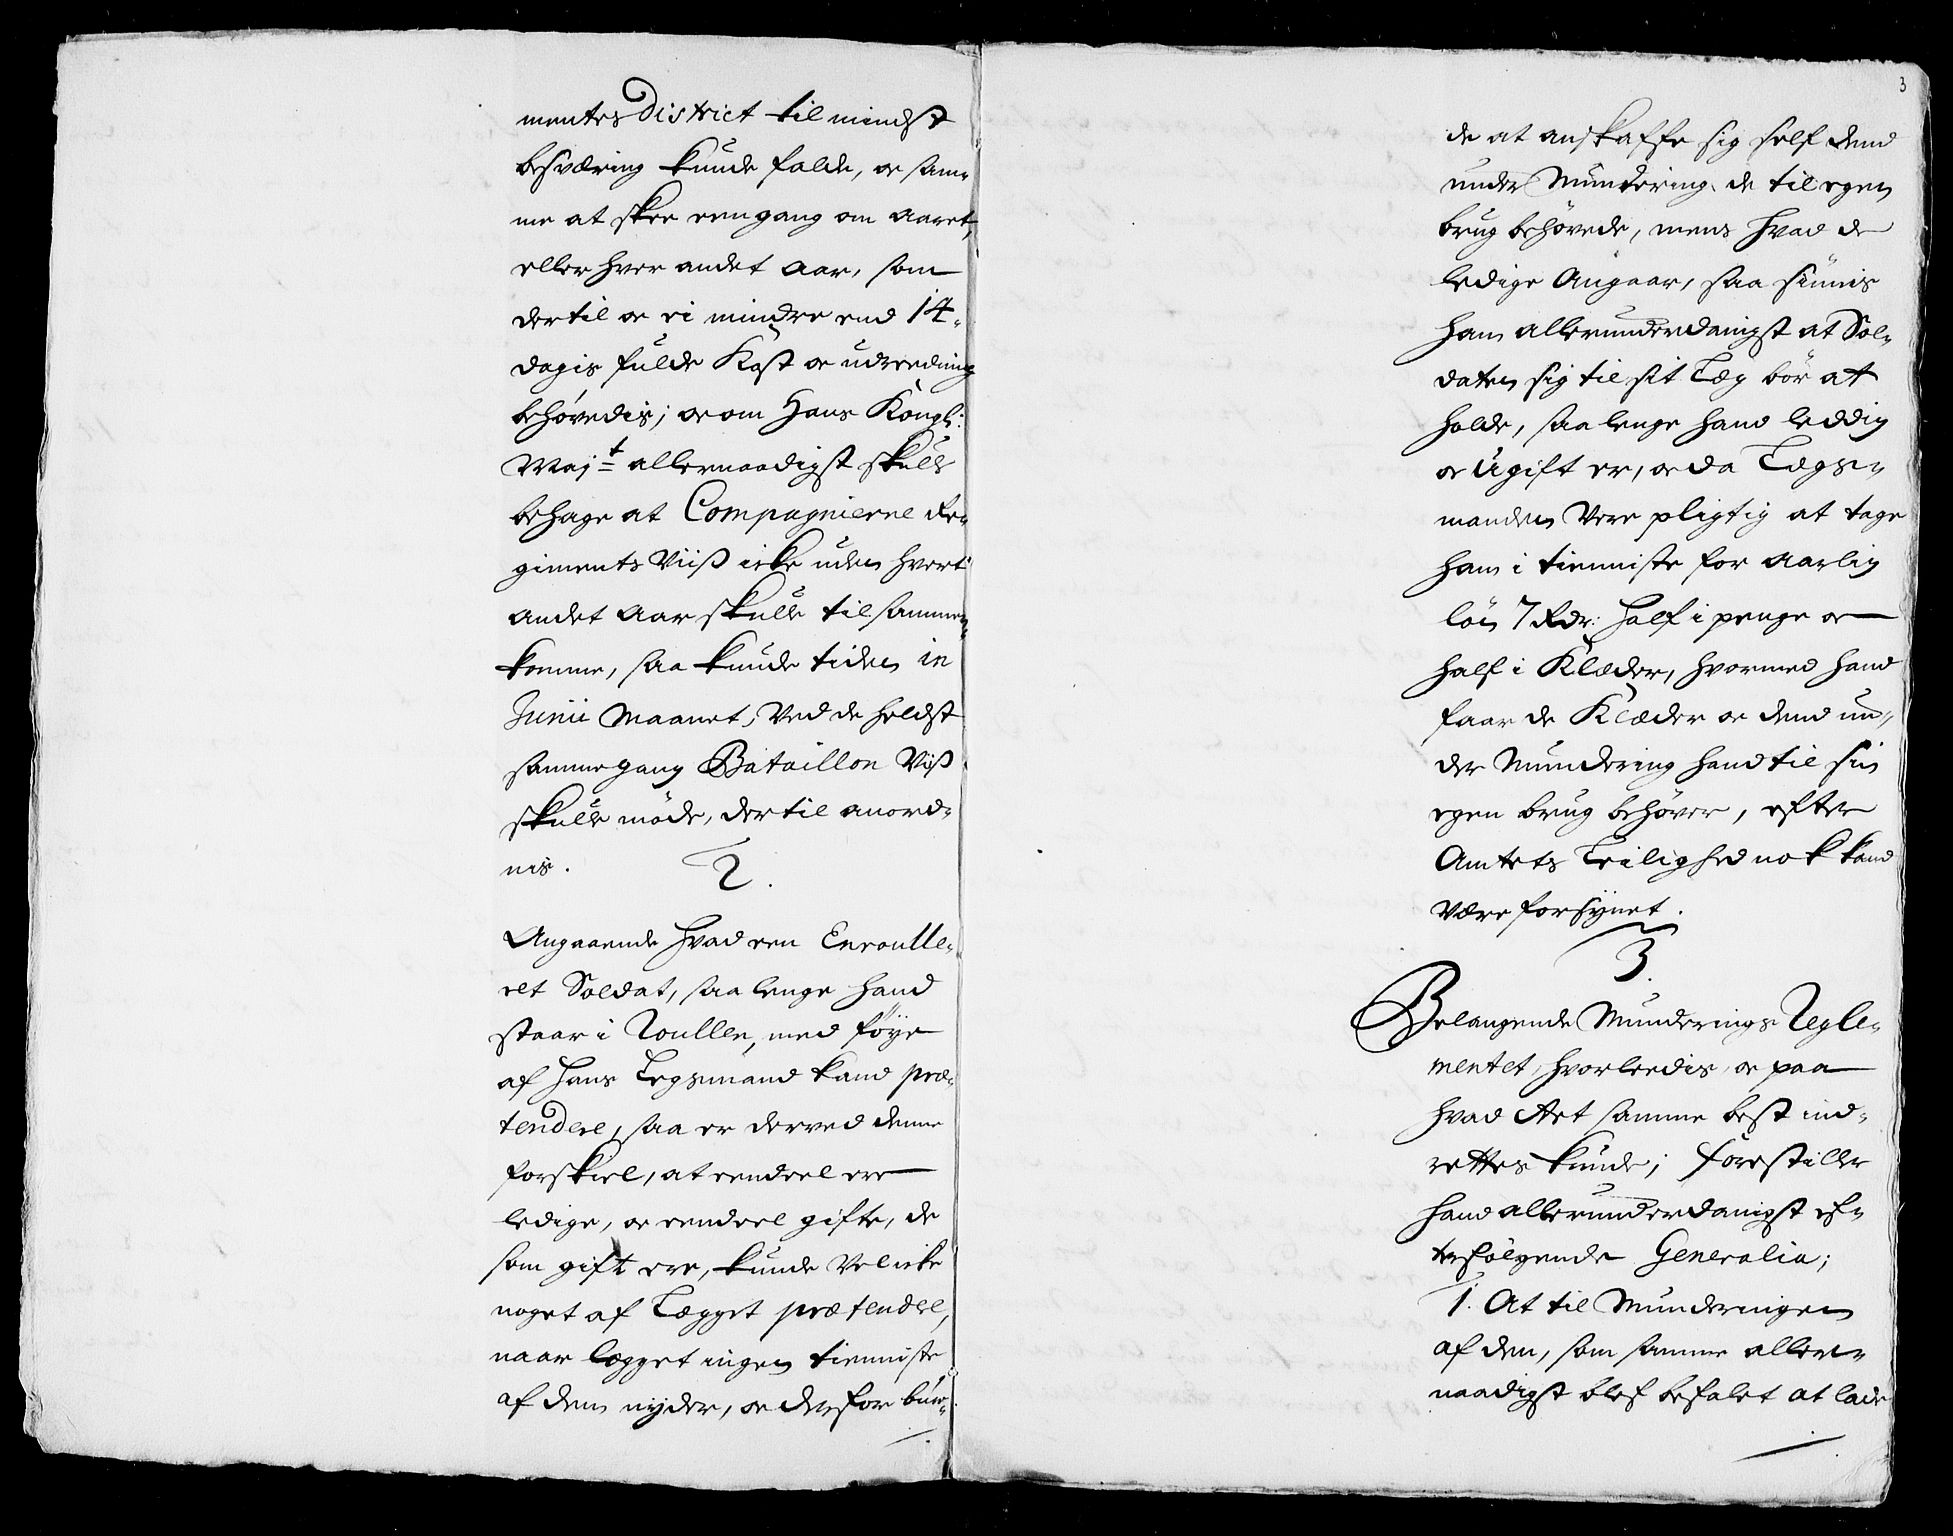 mentes District til mindst
besværing kunde falde, oc sam-
me at skee een gang om aaret,
eller hver andet aar, som
dertil oc ei mindre end 14.
dagis fulde Kost oc udreedning
behövedis; oc om Hans Kongl:
Maj:t allernaadigst skulle
behage at Compagnierne Re-
giments Viiß icke uden hvert
andet Aar skulle til sammen-
komme, saa kunde tiden in
Junii Maanet, Ved de heldst
samme gang Bataillon Viß
skulle möde, der til anord-
nis.
2.
Angaaende hvad een Enroulle-
ret Soldat, saa lenge hand
staar i Roullen, med föye
af hans Legsmand kand præ-
tendere, saa er derved denne
forskiel, at eendeel ere
ledige, oc eendeel gifte, de
som gift ere, kunde Vel icke
noget af Lægget prætendere,
naar lægget ingen tienniste
af dem nyder, oc derfor bur-
3
de at anskaffe sig self dend
under Mundering de til egen
brug behövede, mens hvad de
ledige Angaar, saa siunis
ham allerunderdanigst at Sol-
daten sig til sit Læg bör at
holde, saa lenge hand leddig
oc Ugift er, oc da Lægs-
manden Vere pligtig at tage
ham i tienniste for aarlig
lön 7 Rdr: half i penge oc
half i Klæder, hvormed hand
faar de Klæder oc dend un-
der Mundering hand til sin
egen brug behöver, efter
Amtets Leilighed nok kand
være forsynet.
3.
Belangende Munderings Regle-
mentet, hvorleedis, oc paa
hvad Art samme best ind-
rettes kunde; forestiller
hand allerunderdanigst ef-
terfölgende Generalia;
1. At til Munderingen
af dem, som samme aller-
naadigst blef befalet at lade